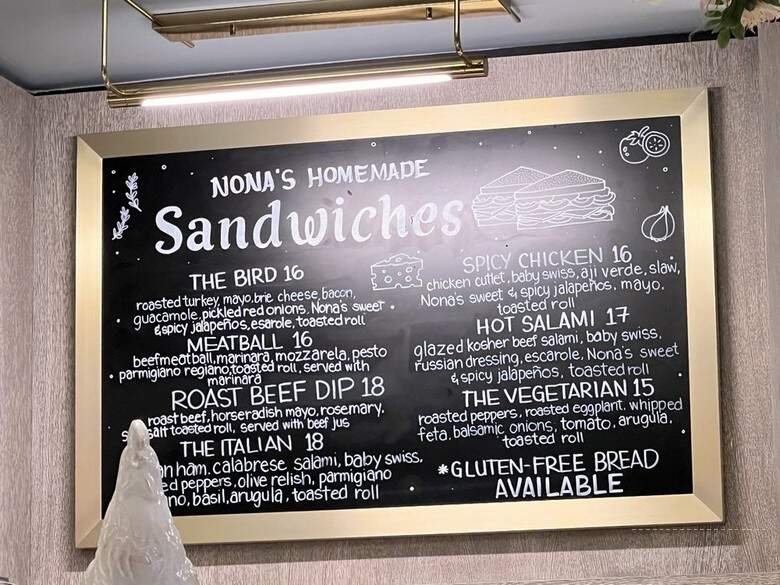 NONA'S HOMEMADE
Sandwiches
THE BIRD 16
roasted turkey, mayo, brie cheese, bacon,
guacamole, pickled red onions, Nona's sweet
& spicy jalapeños, esarole, toasted roll
MEATBALL 16
beef meatball, marinara, mozzarela, pesto
parmigiano regiano, toasted roll, served with
marinara
ROAST BEEF DIP 18
roast beef, horseradish mayo, rosemary,
salt toasted roll, served with beef jus
THE ITALIAN 18
ham, calabrese salami, baby swiss,
peppers, olive relish, parmigiano
basil, arugula, toasted roll
SPICY CHICKEN 16
chicken cutlet, baby swiss, aji verde, slaw,
Nona's sweet & spicy jalapeños, mayo,
toasted roll
HOT SALAMI 17
glazed kosher beef salami, baby swiss,
russian dressing, escarole, Nona's sweet
& spicy jalapeños, toasted roll
THE VEGETARIAN 15
roasted peppers, roasted eggplant, whipped
feta, balsamic onions, tomato, arugula,
toasted roll
*GLUTEN-FREE BREAD
AVAILABLE